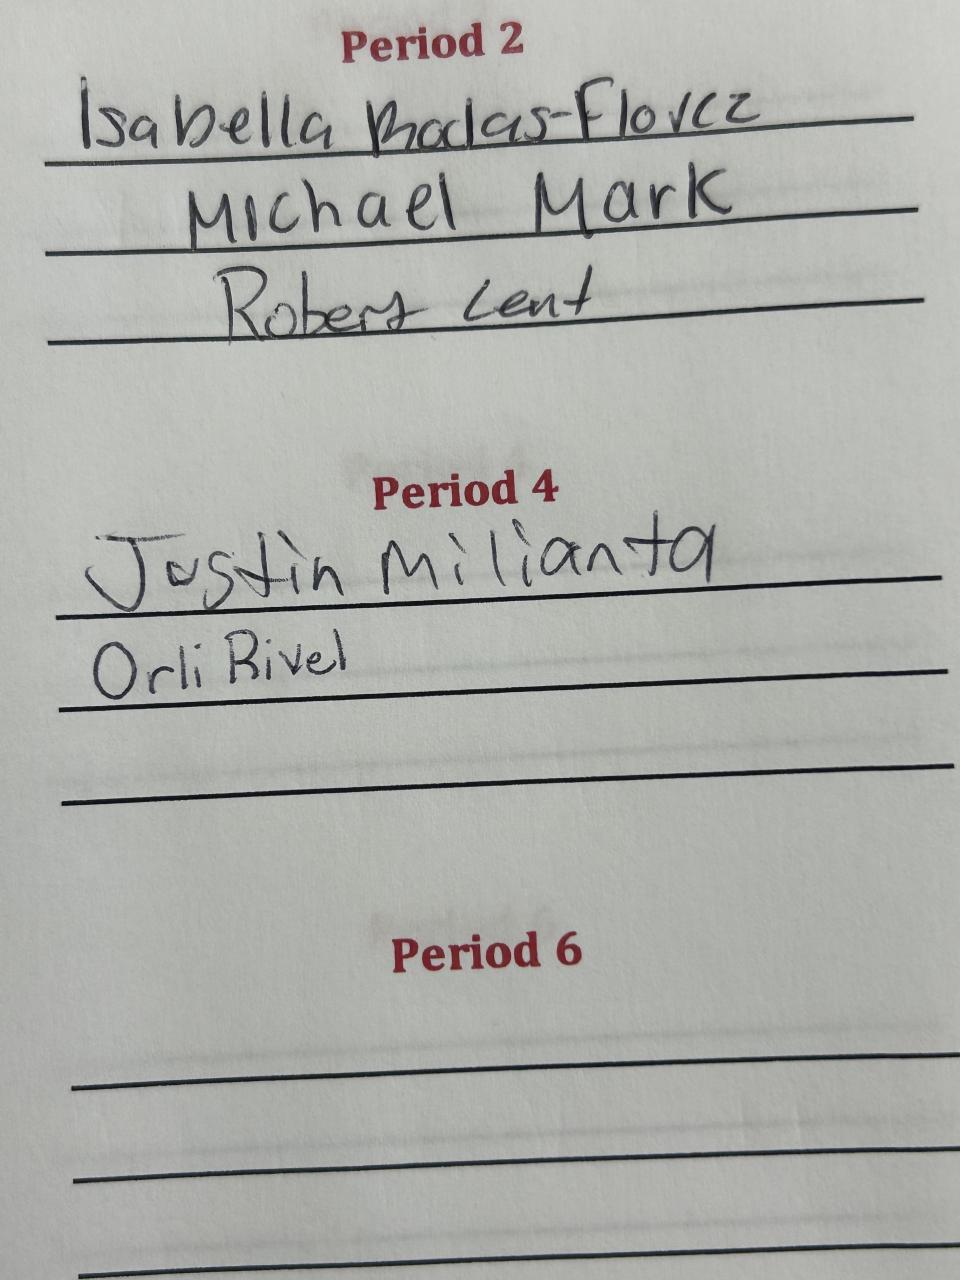 Period 2
Isabella Rodas-Florez
Michael Mark
Robert Lent
Period 4
Justin Milianta
Orli Rivel
Period 6